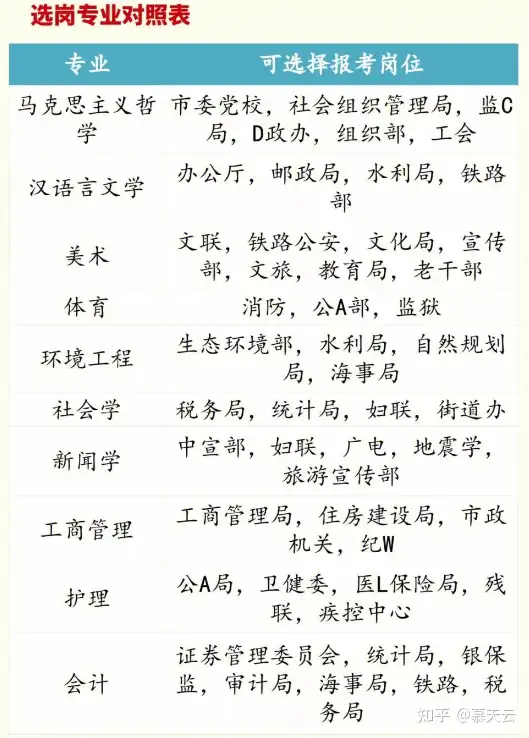 选岗专业对照表
专业 可选择报考岗位
马克思主义哲 市委党校，社会组织管理局，监C
学 局，D政办，组织部，工会
汉语言文学 办公厅，邮政局，水利局，铁路
部
美术 文联，铁路公安，文化局，宣传
部，文旅，教育局，老干部
体育 消防，公A部，监狱
环境工程 生态环境部，水利局，自然规划
局，海事局
社会学 税务局，统计局，妇联，街道办
新闻学 中宣部，妇联，广电，地震学，
旅游宣传部
工商管理 工商管理局，住房建设局，市政
机关，纪W
护理 公A局，卫健委，医L保险局，残
联，疾控中心
会计 证券管理委员会，统计局，银保
监，审计局，海事局，铁路，税
务局
知乎 @慕天云